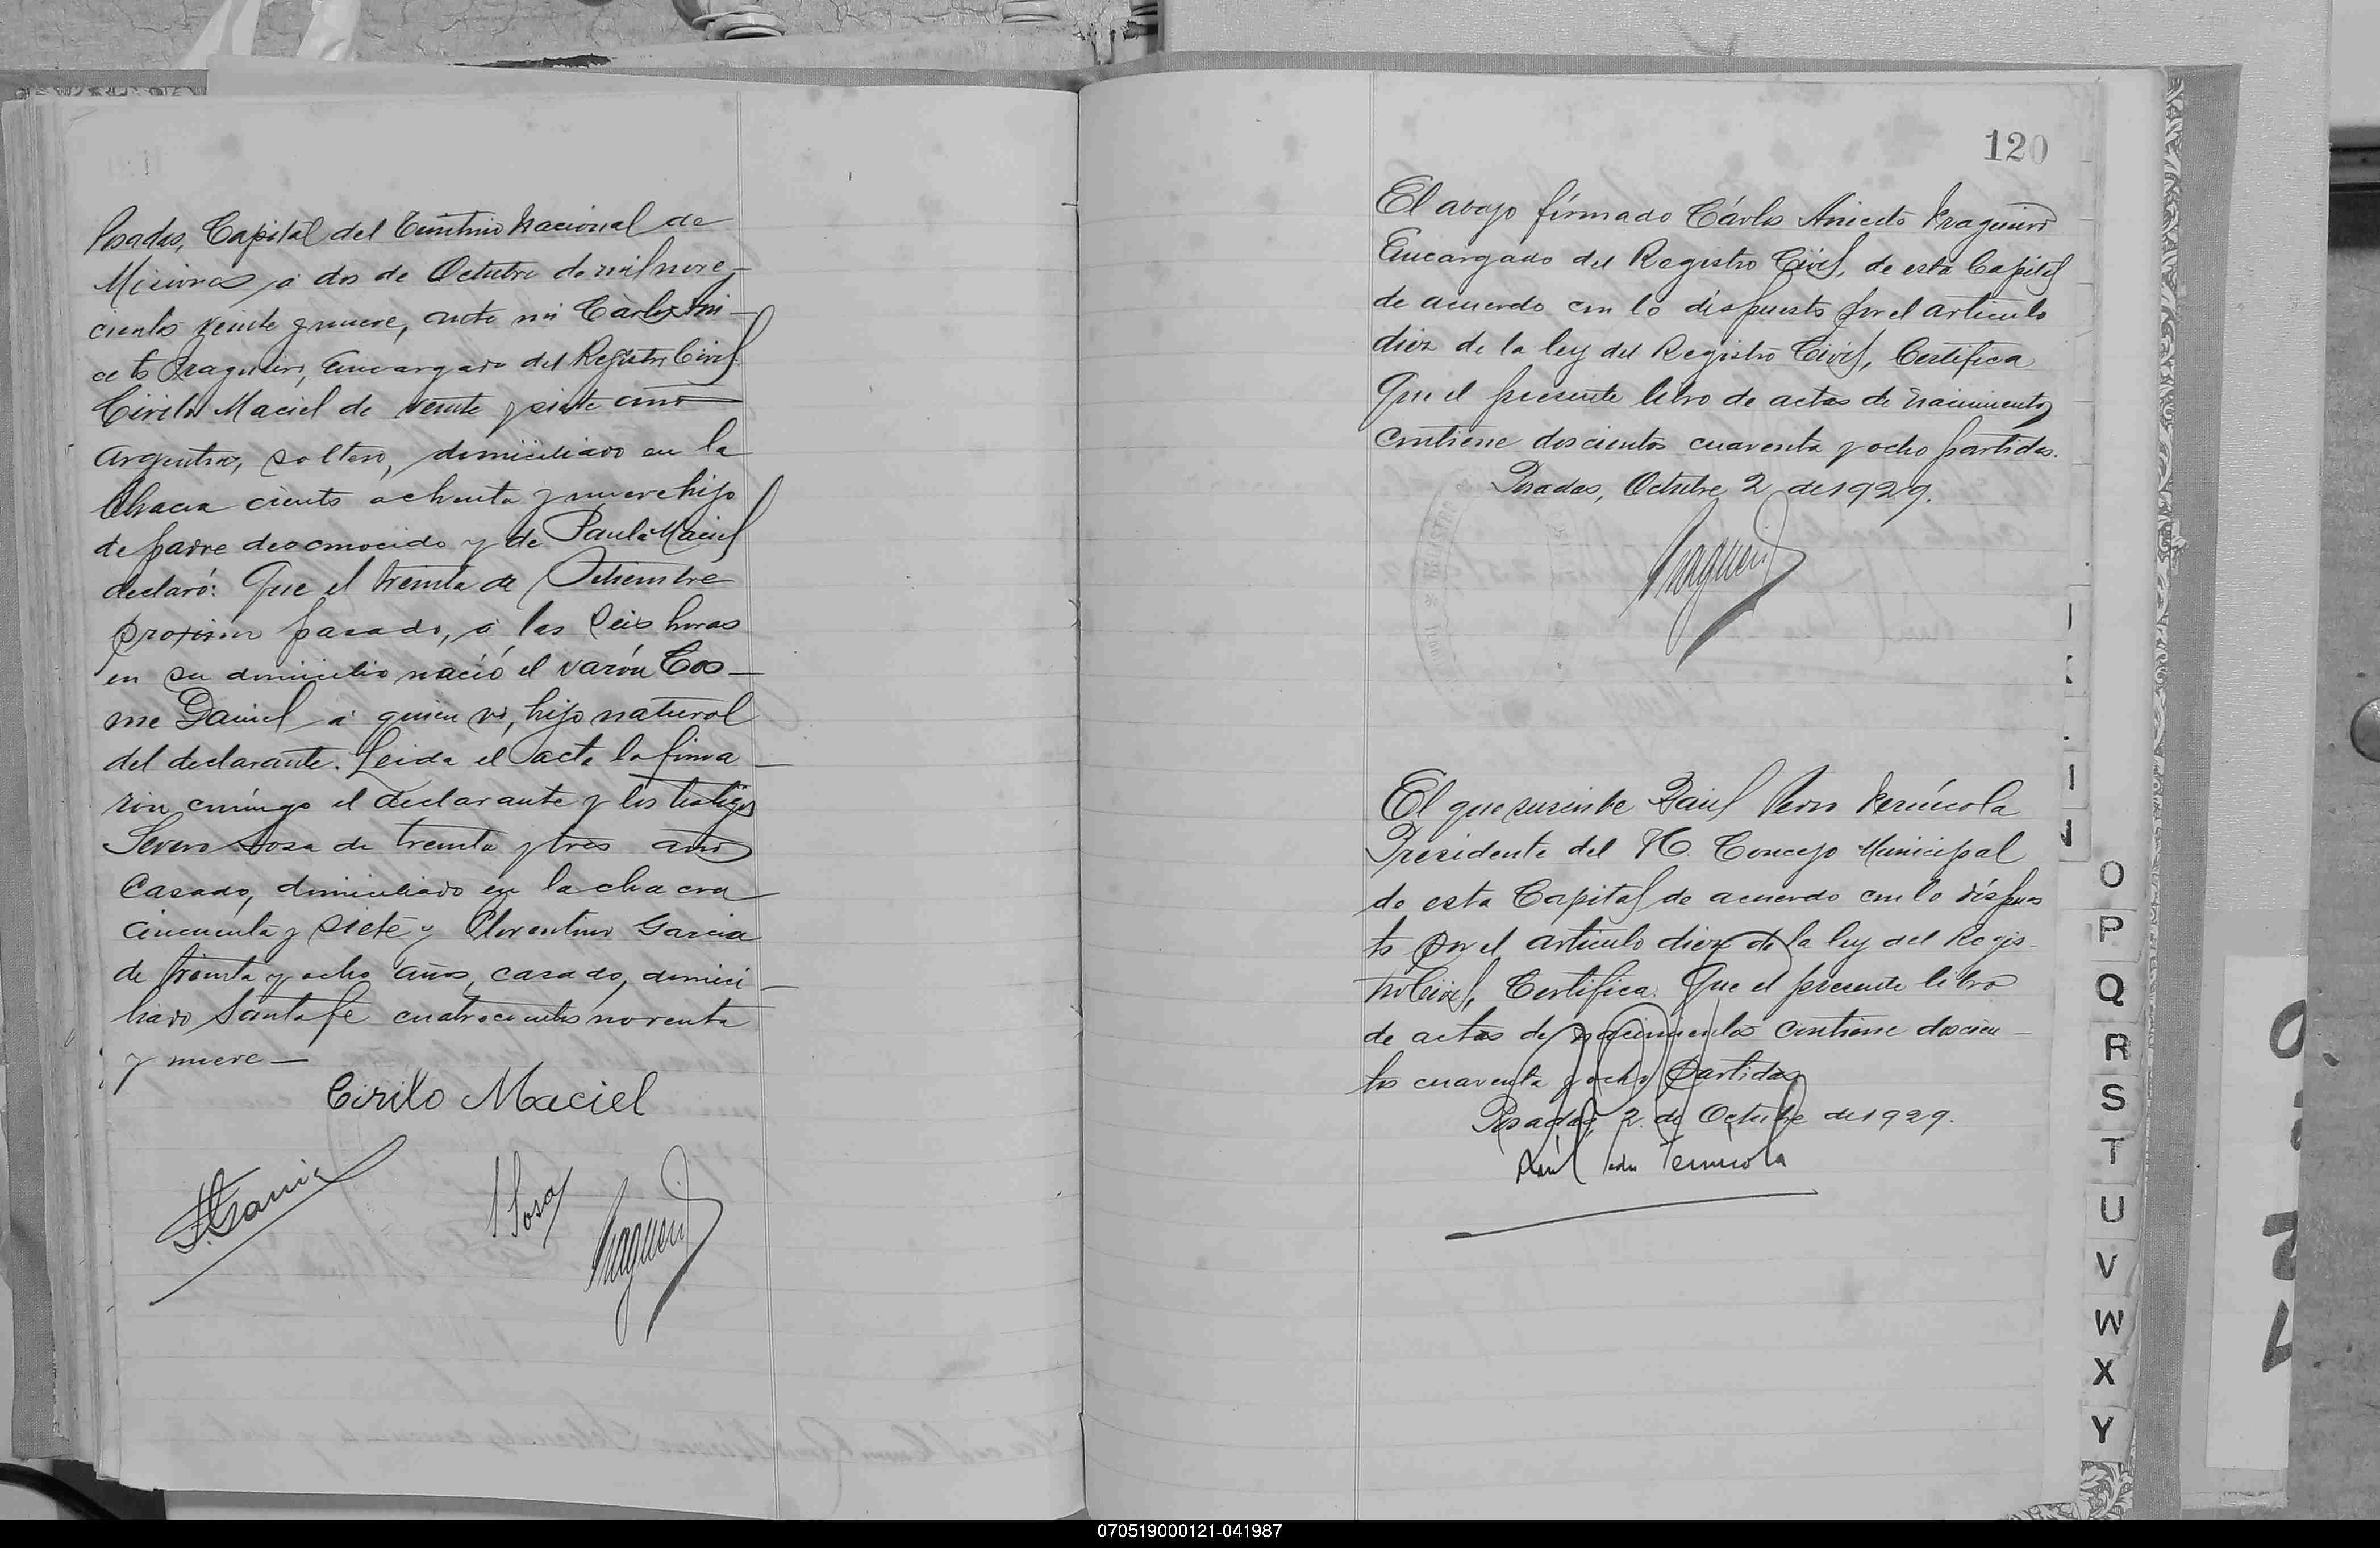 Posadas, Capital del Territorio Nacional de
Misiones, á dos de Octubre de mil nove_
cientos veinte y nueve, ante mi Cárlos Ani_
ceto Fraguiero, Encargado del Registro Civil
Cirilo Maciel de veinte y siete años
argentino, soltero, domiciliado en la
Chacra ciento ochenta y nueve hijo
de padre desconocido y de Paula Maciel
declaró: Que el treinta de Setiembre
proximo pasado, á las seis horas
en su domicilio nació el varón Cos_
me Daniel á quien vi, hijo natural
del declarante. Leida el acta la firma_
ron conmigo el declarante y los testigos
Severo Sosa de treinta y tres años
casado, domiciliado en la chacra
cincuenta y siete y Florentino Garcia
de treinta y ocho años, casado, domici_
liado Santa fe cuatrocientos noventa
y nueve_
Cirilo Maciel
F. Garcia
S Sosa
120
El abajo firmado Cárlos Aniceto Fraguiero
Encargado del Registro Civil, de esta Capital
de acuerdo con lo dispuesto por el articulo
diez de la ley del Registro Civil, Certifica
Que el presente libro de actas de nacimientos
contiene doscientos cuarenta y ocho partidas.
Posadas, Octubre 2 de 1929.
El que suscribe Raúl
Presidente del H. Concejo Municipal
de esta Capital de acuerdo con lo dispues
to por el articulo diez de la ley del Regis_
tro Civil, Certifica. Que el presente libro
de actas de nacimientos contiene doscien_
tos cuarenta y ocho partidas
Posadas, 2 de Octubre de 1929.
Raúl
O
P
Q
R
S
T
U
V
W
X
Y
070519000121-041987